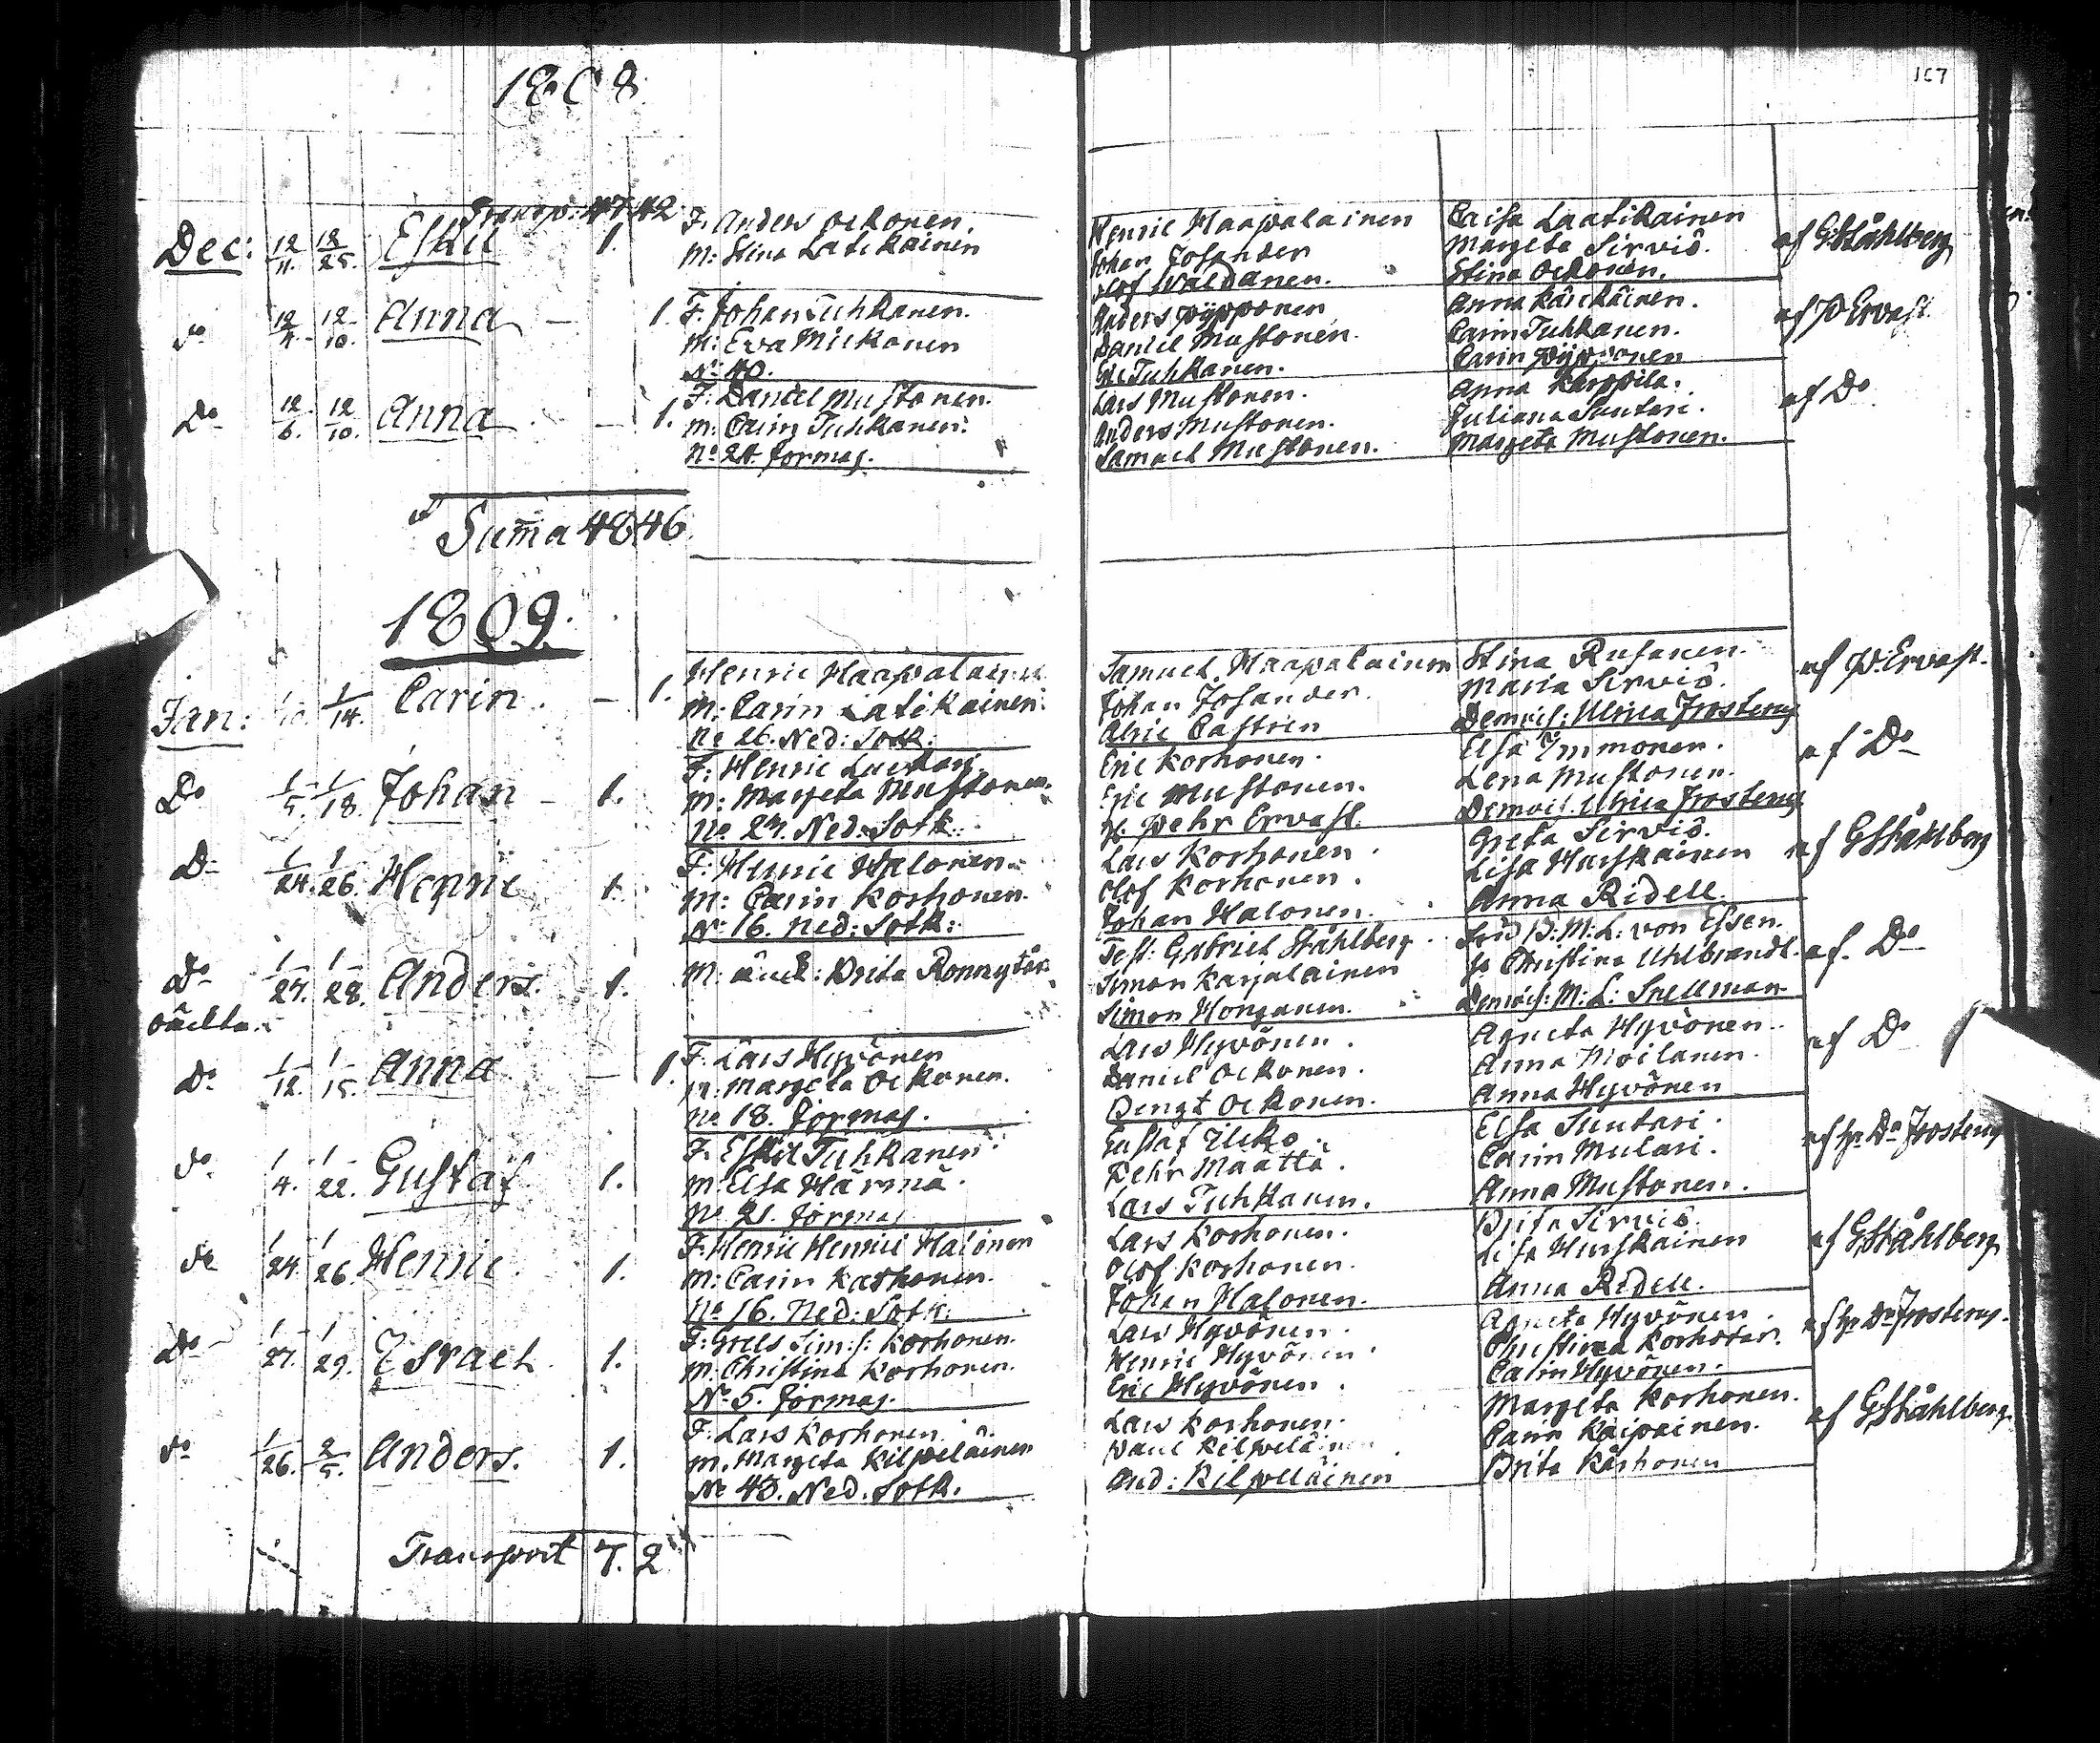 1808
107
Transp: 47 42
Dec: 12/11. 12/25. Eskil 1. F. Anders Ockonen. Henric Haapalainen Caisa Laatikainen af GStåhlberg
M: Stina Latikainen Johan Josander Margeta Sirviö.
Olof Waldanen. Stina Ockonen.
do 12/4. 12/10. Anna — 1. F. Johan Tuhkanen. Anders Pypponen Anna Kärckäinen. af P Ervast
M: Eva Mickonen Daniel Mustonen. Carin Tuhkanen.
No 40. Eric Tuhkanen. Carin Pypponen
Do 12/6. 12/10. Anna — 1. F: Daniel Mustonen. Lars Mustonen. Anna Karppila. af Do
M: Carin Tuhkanen. Anders Mustonen. Juliana Suntari.
No 24. Jormas. Samuel Mustonen. Margeta Mustonen.
Suma 48 46
1809.
Jan: 1/14. Carin. — 1. Henric Haapalainen Samuel Haapalainen Stina Rusanen. af P. Ervast.
M: Carin Latikainen. Johan Josander. Maria Sirviö.
No 26. Ned: Sotk: Alric Castrin Demois: Ulrica Frosterus
Do 1/5. 1/18. Johan — 1. F: Henric Eric Korhonen. Elsa Immonen. af Do
M: Margeta Mustonen. Eric Mustonen. Lena Mustonen.
No 27. Ned: Sotk: H. Pehr Ervast. Demois. Ulrica Frosterus
Do 1/24. 1/26. Henric 1. F: Henric Halonen. Lars Korhonen. Greta Sirviö. af GStåhlberg
M: Carin Korhonen. Olof Korhonen. Lisa Hurskainen
No 16. Ned: Sotk: Johan Halonen. Anna Ridell.
Do 1/27. 1/28. Anders. 1. M: Brita Test: Gabriel Ståhlberg B: M: L: von Essen. af. Do
oäckta. Simon Karjalainen Christina Uhlbrandt.
Simon Honganen. Demois: M: L: Snellman
Do 1/12. 1/15. Anna — 1. F. Lars Hyvönen Lars Hyvönen. Agneta Hyvönen. af Do
M. Margeta Ockonen. Daniel Ockonen. Anna Moilanen.
No 18. Jormas. Bengt Ockonen. Anna Hyvönen
do 1/4. 1/22. Gustaf 1. F. Eskil Tuhkanen Gustaf Elsa Suntari. af hr Do Frosterus
M: Elsa Härmä. Pehr Määttä. Carin Mulari.
No 21. Jormas Lars Tuhkanen. Anna Mustonen.
do 1/24. 1/26. Henric. 1. F. Henric Henrici Halonen Lars Korhonen. Brita Sirviö. af GStåhlberg
M: Carin Korhonen. Olof Korhonen. Lisa Hurskainen
No 16. Ned: Sotk: Johan Halonen. Anna Ridell.
Do 1/27. 1/29. Israel. 1. F: Grels Sim: s: Korhonen. Lars Hyvönen. Agneta Hyvönen. af hr Do Frosterus.
M. Christina Korhonen. Henric Hyvönen Christina Korhotar.
No 5. Jormas. Eric Hyvönen. Carin Hyvönen.
do 1/26. 2/5. Anders. 1. F. Lars Korhonen. Lars Korhonen. Margeta Korhonen. af GStåhlberg
M. Margeta Kilpeläinen Paul Kilpeläinen Carin Kaipainen.
No 43. Ned. Sotk. And: Kilpeläinen Brita Korhonen
Transport 7. 2